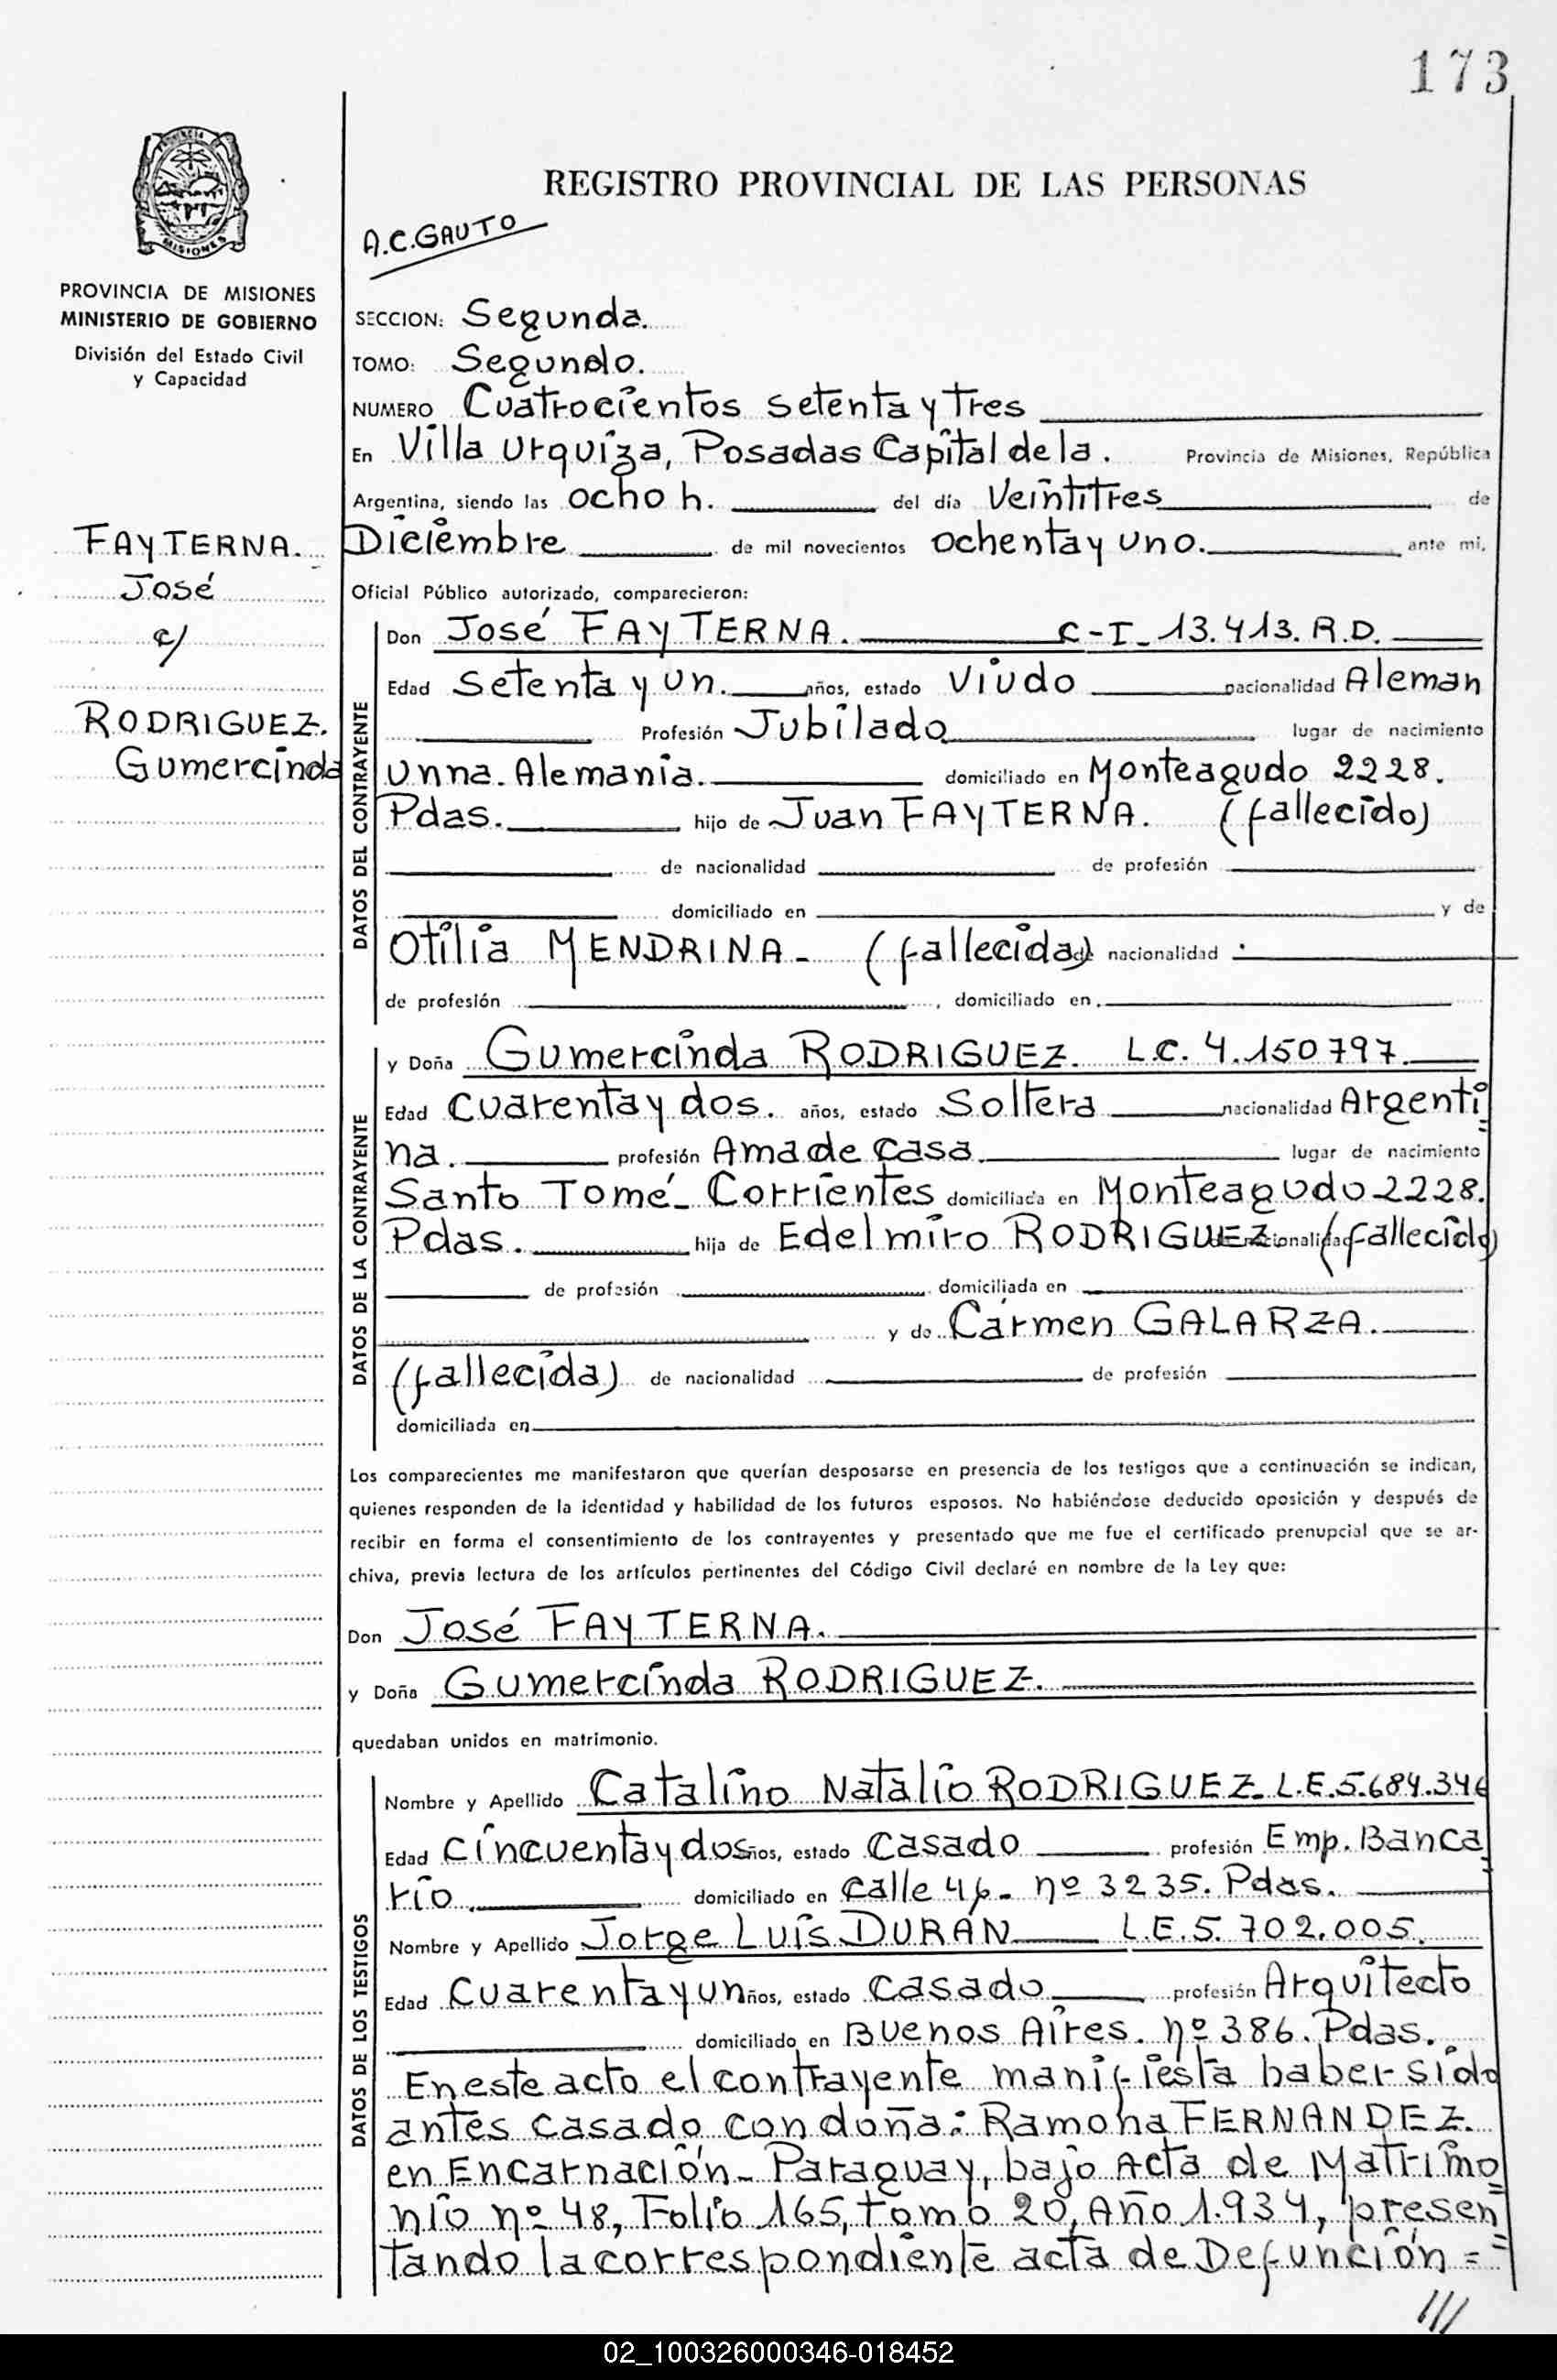 173
REGISTRO PROVINCIAL DE LAS PERSONAS
A.C. GAUTO
MISIONES
PROVINCIA DE MISIONES
MINISTERIO DE GOBIERNO
División del Estado Civil
y Capacidad
SECCION: Segunda.
TOMO: Segundo.
NUMERO Cuatrocientos setenta y tres
En Villa Urquiza, Posadas Capital de la. Provincia de Misiones, República
Argentina, siendo las ocho h. del día Veintitres de
Diciembre de mil novecientos ochenta y uno. ante mi,
Oficial Público autorizado, comparecieron:
FAYTERNA.
José
c/
RODRIGUEZ.
Gumercinda
DATOS DEL CONTRAYENTE
Don José FAYTERNA. C-I- 13.413. R.D.
Edad Setenta y un. años, estado Viudo nacionalidad Aleman
Profesión Jubilado lugar de nacimiento
Unna. Alemania. domiciliado en Monteagudo 2228.
Pdas. hijo de Juan FAYTERNA. (fallecido)
de nacionalidad de profesión
domiciliado en y de
Otilia MENDRINA- (fallecida) nacionalidad
de profesión , domiciliado en
DATOS DE LA CONTRAYENTE
y Doña Gumercinda RODRIGUEZ. L.C. 4.150797.
Edad Cuarenta y dos. años, estado Soltera nacionalidad Argenti
na. profesión Ama de Casa. lugar de nacimiento
Santo Tomé- Corrientes domiciliada en Monteagudo 2228.
Pdas. hija de Edelmiro RODRIGUEZ (fallecido)
de profesión domiciliada en
y de Carmen GALARZA.
(fallecida) de nacionalidad de profesión
domiciliada en
Los comparecientes me manifestaron que querían desposarse en presencia de los testigos que a continuación se indican,
quienes responden de la identidad y habilidad de los futuros esposos. No habiéndose deducido oposición y después de
recibir en forma el consentimiento de los contrayentes y presentado que me fue el certificado prenupcial que se ar-
chiva, previa lectura de los artículos pertinentes del Código Civil declaré en nombre de la Ley que:
Don José FAYTERNA.
y Doña Gumercinda RODRIGUEZ.
quedaban unidos en matrimonio.
DATOS DE LOS TESTIGOS
Nombre y Apellido Catalino Natalio RODRIGUEZ. L.E.5.684.346
Edad Cincuenta y dos años, estado Casado profesión Emp. Banca
rio domiciliado en Calle 46- nº 3235. Pdas.
Nombre y Apellido Jorge Luis DURAN L.E.5.702.005.
Edad Cuarenta y un años, estado Casado profesión Arquitecto
domiciliado en Buenos Aires. nº 386. Pdas.
En este acto el contrayente manifiesta haber sido
antes casado con doña: Ramona FERNANDEZ.
en Encarnación- Paraguay, bajo Acta de Matrimo
nio nº 48, Folio 165, tomo 20, Año 1.934, presen
tando la correspondiente acta de Defunción =
///
02_100326000346-018452